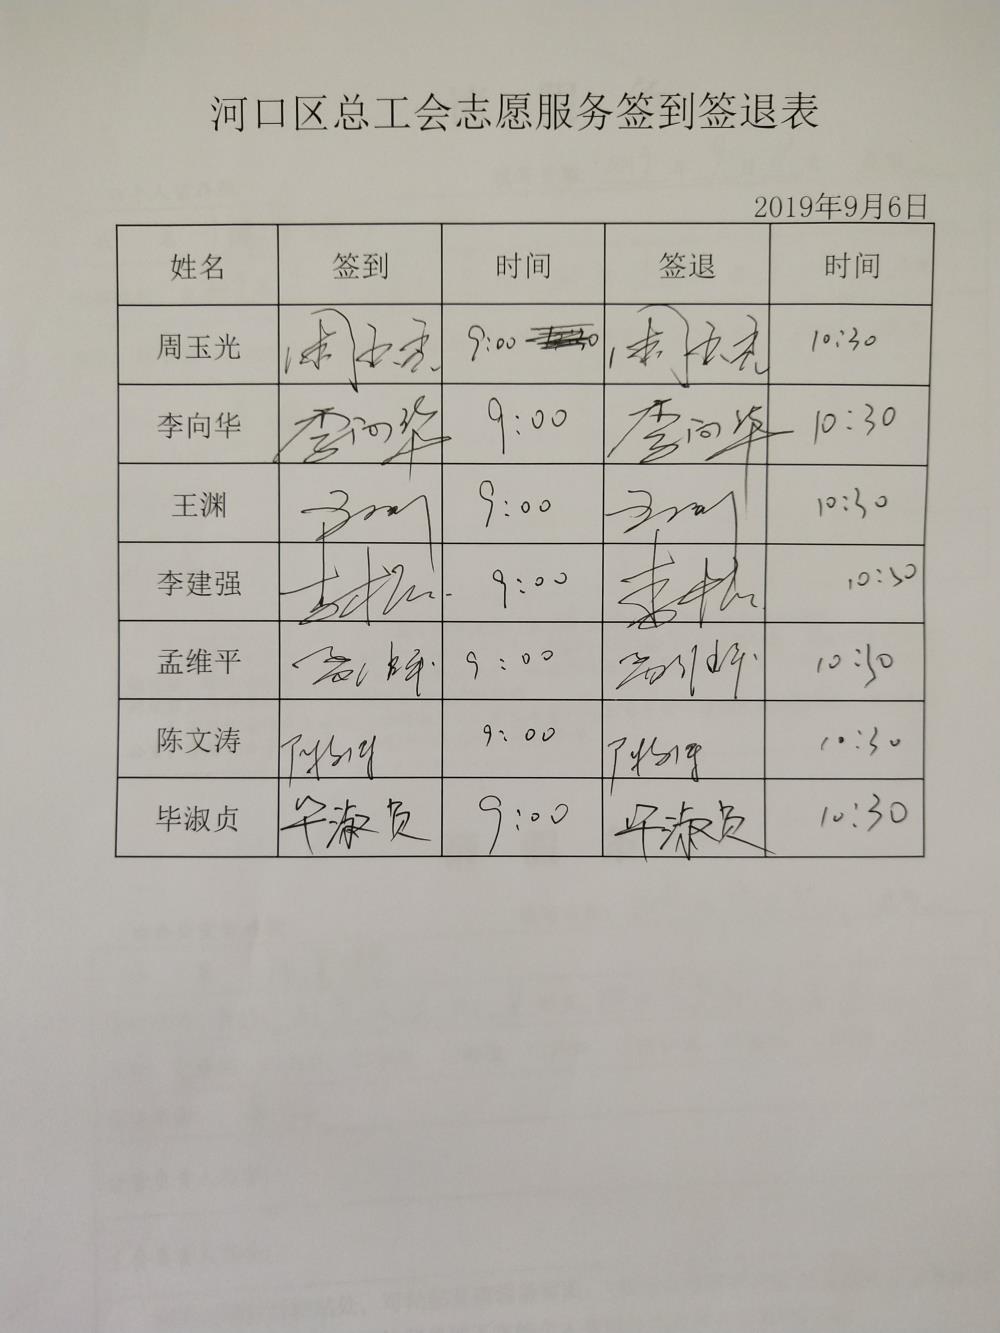 河口区总工会志愿服务签到签退表
2019年9月6日
姓名 签到 时间 签退 时间
周玉光 周玉光 9:00 周玉光 10:30
李向华 李向华 9:00 李向华 10:30
王渊 王渊 9:00 王渊 10:30
李建强 李建强 9:00 李建强 10:30
孟维平 孟维平 9:00 孟维平 10:30
陈文涛 陈文涛 9:00 陈文涛 10:30
毕淑贞 毕淑贞 9:00 毕淑贞 10:30